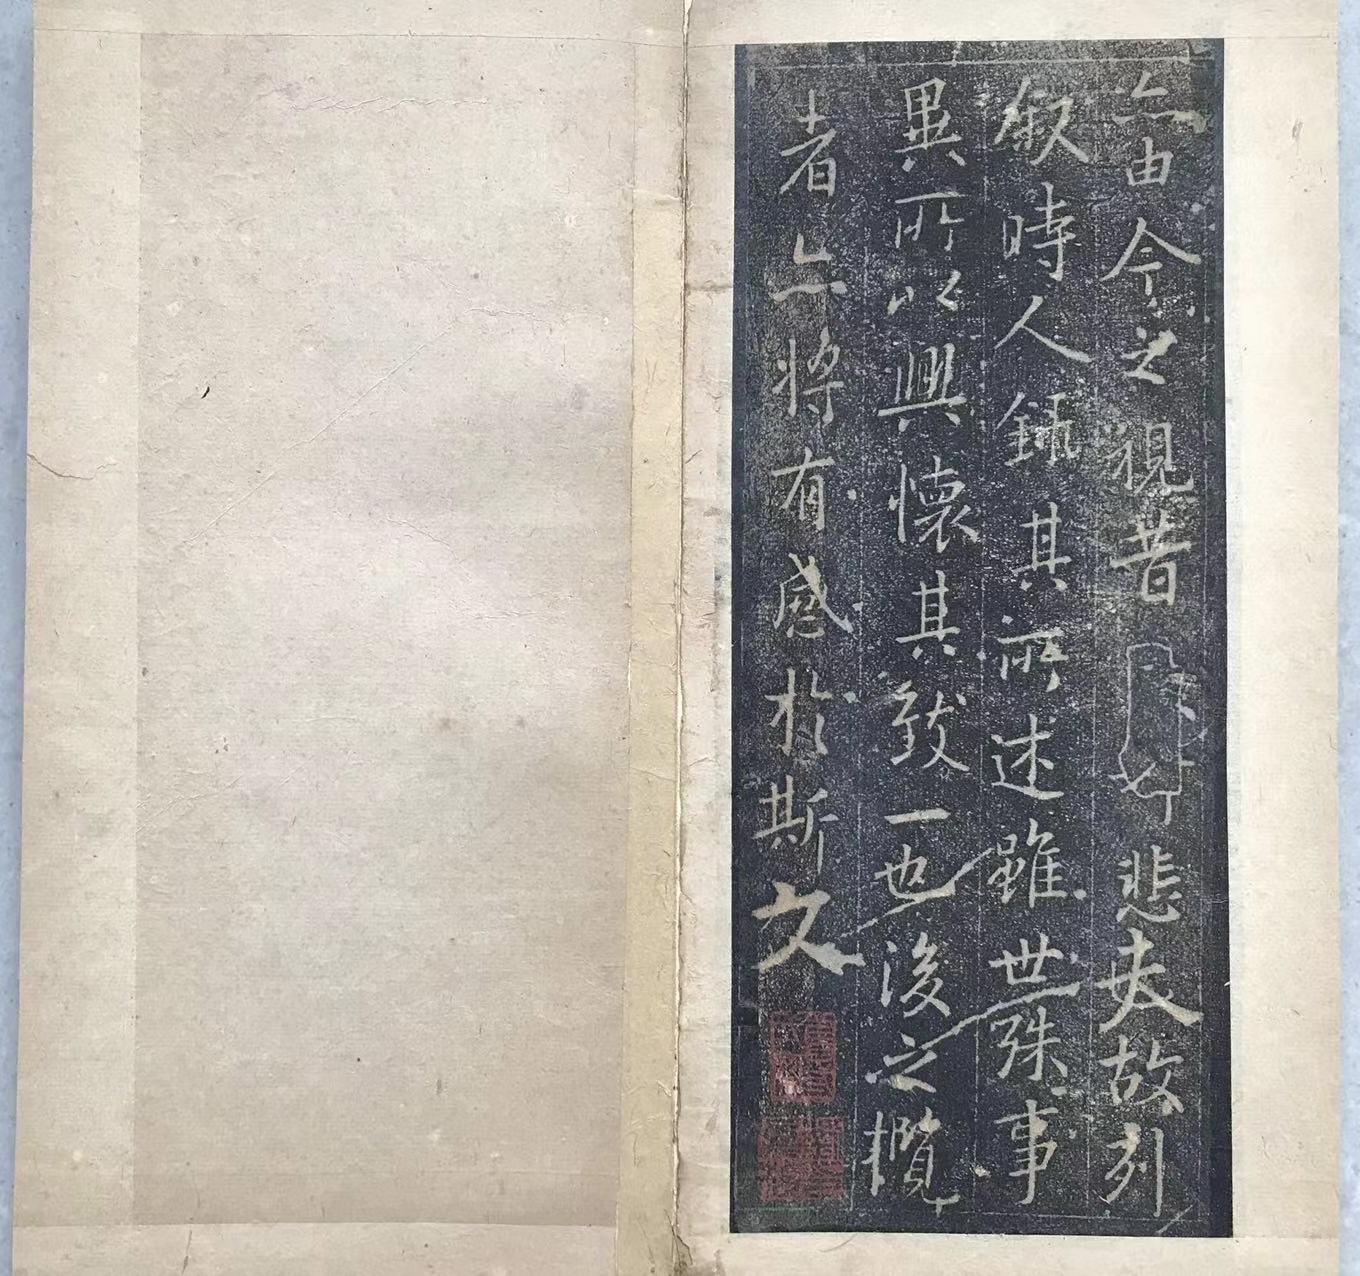 亦由今之視昔悲夫故列
叙時人録其所述雖世殊事
異所以興懷其致一也後之攬
者亦將有感於斯文